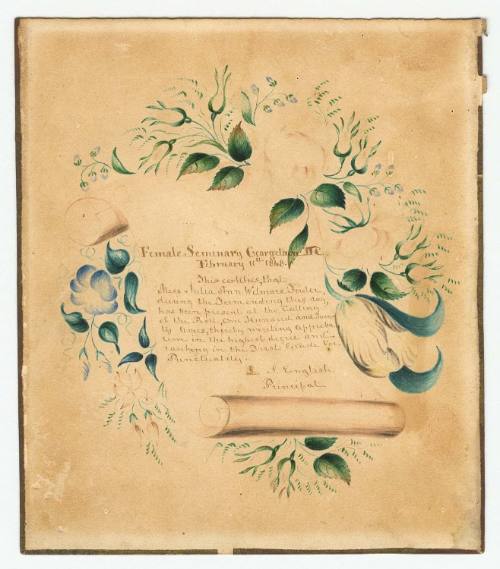 Female Seminary Georgetown DC
February 11th 1848.
This certifies, that
Miss Julia Ann Wilmore Fowler
during the Term ending this day,
has been present at the Calling
of the Roll, One Hundred and
times, thereby meriting approba
tion in the highest degree and
ranking in the First Grade for
Punctuality.
L. S. English.
Principal